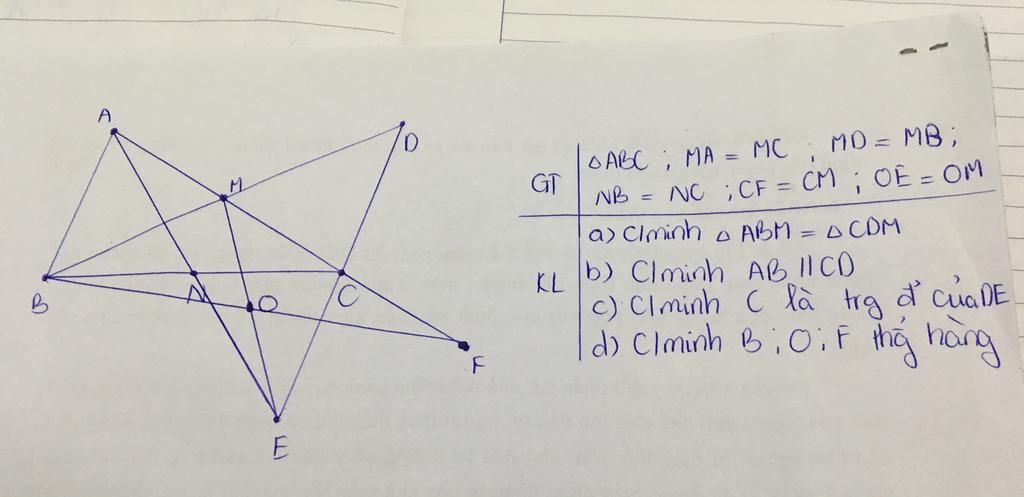 A
D
M
B
N
O
C
F
E
GT
△ABC ; MA = MC ; MD = MB ;
NB = NC ; CF = CM ; OE = OM
KL
a) C/minh △ ABM = △ CDM
b) C/minh AB // CD
c) C/minh C là trg đ' của DE
d) C/minh B ; O ; F thg hàng